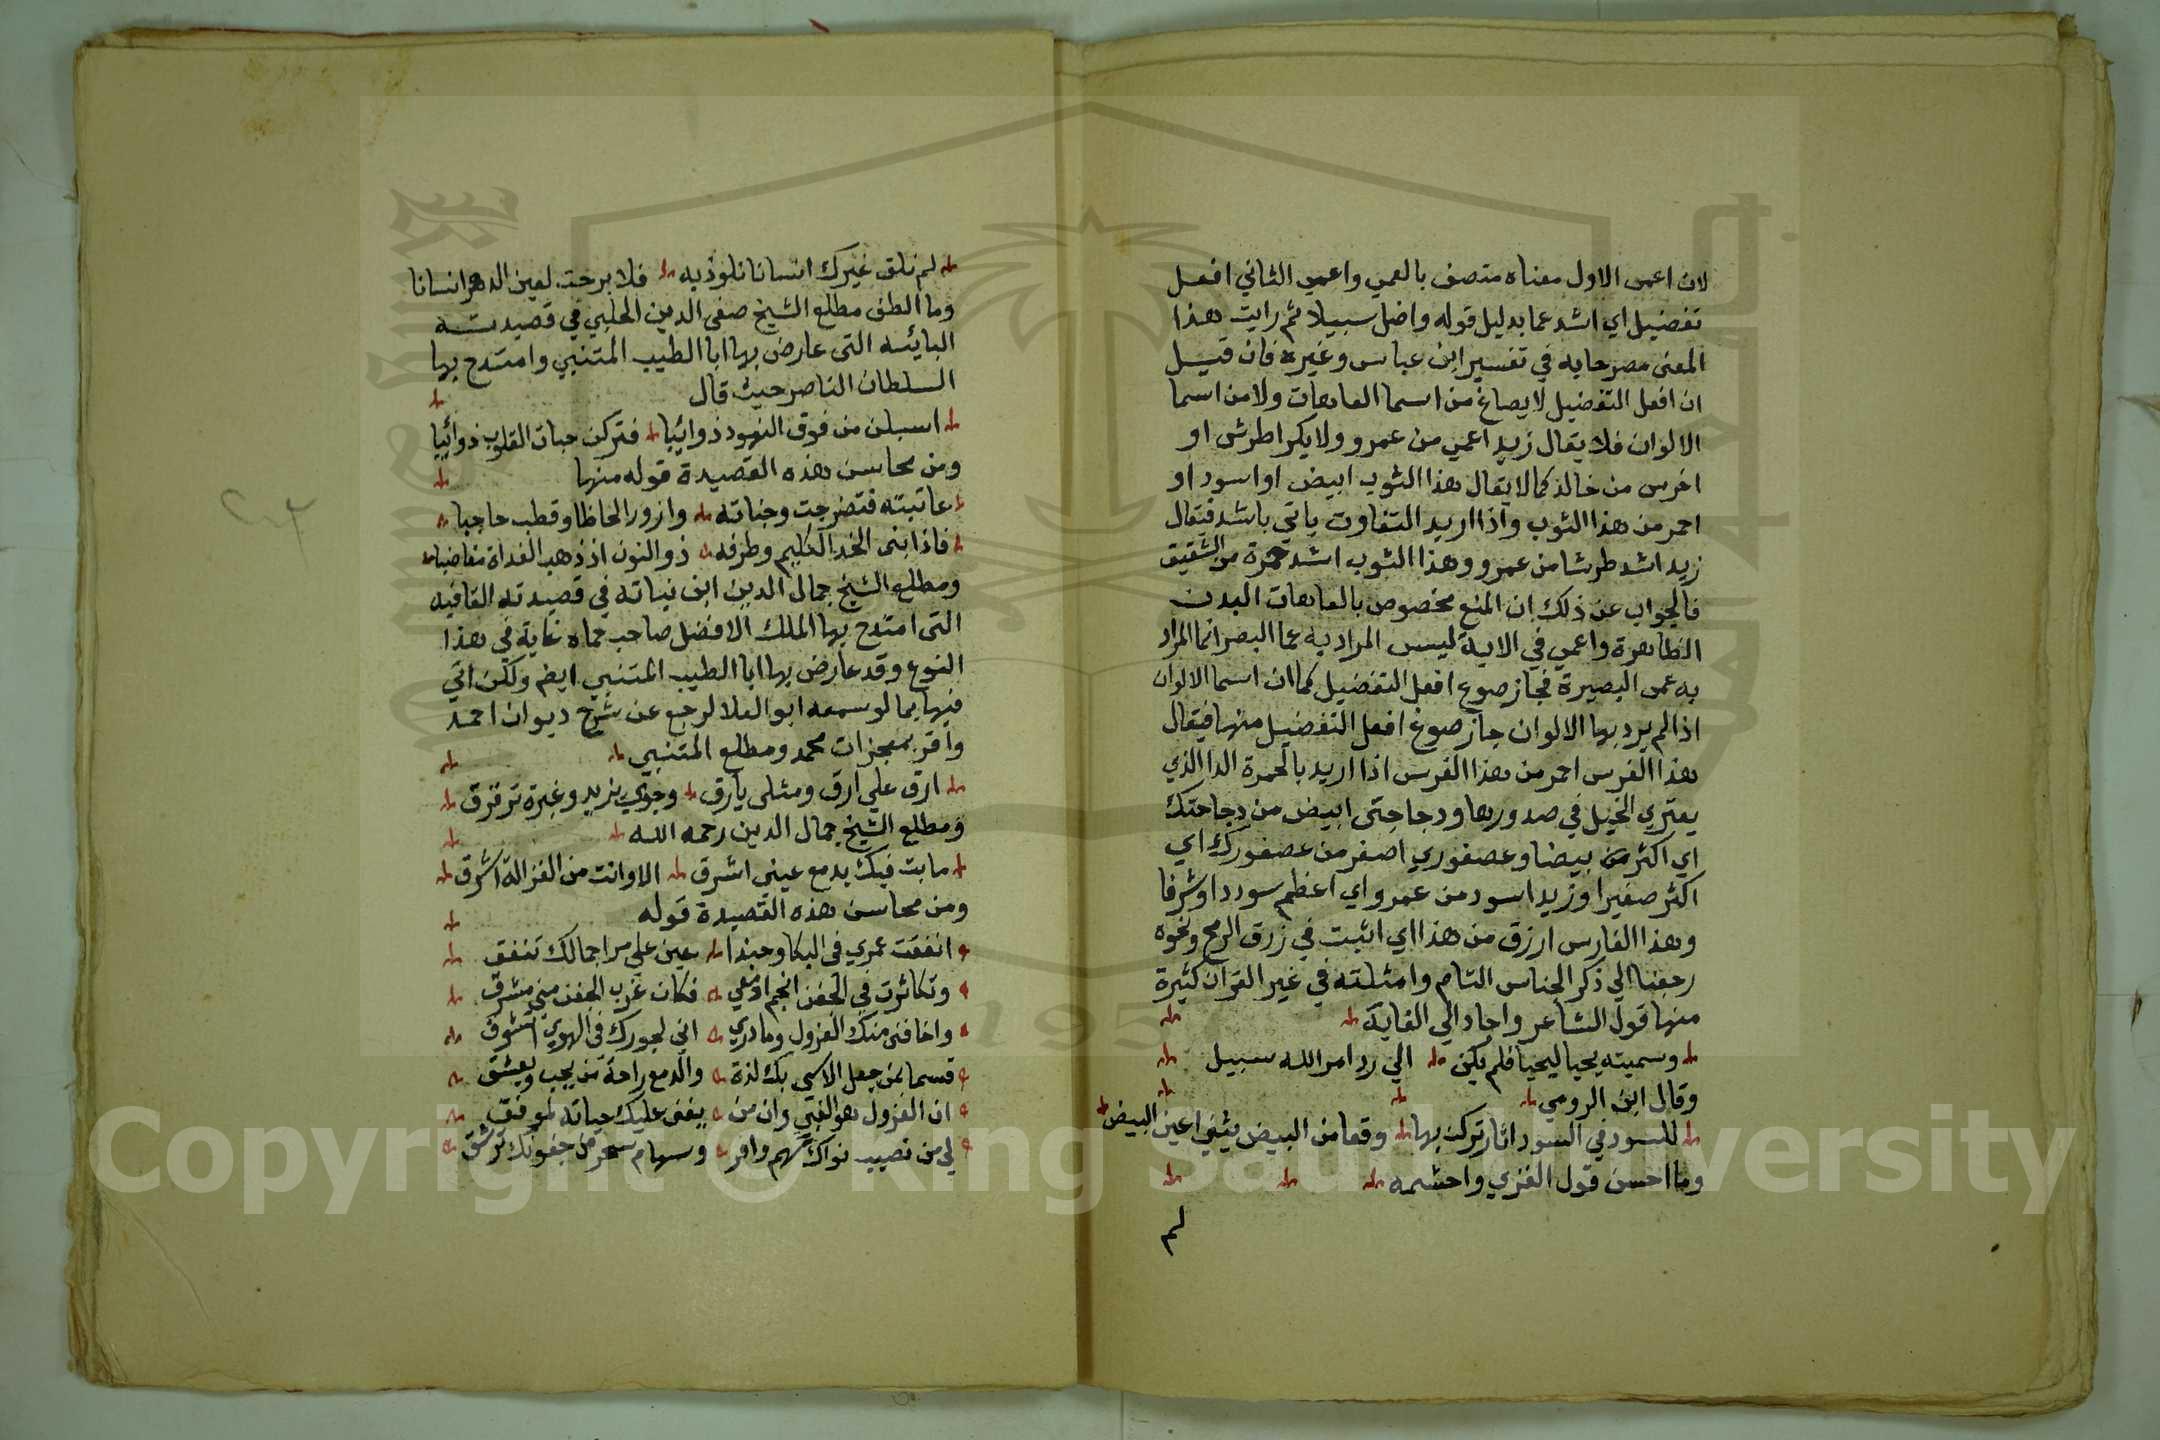 لان اعمى الاول معناه متصف بالعمي واعمي الثاني افعل
تفضيل اي اشد عما بدليل قوله واضل سبيلا ثم رايت هذا
المعنى مصرحا به في تفسير ابن عباس وغيره فان قيل
ان افعل التفضيل لا يصاغ من اسما العاهات ولا من اسما
الالوان فلا يقال زيد اعمي من عمرو ولا بكر اطرش او
اخرس من خالد كما لا يقال هذا الثوب ابيض او اسود او
احمر من هذا الثوب واذا اريد التفاوت ياتي باشد فيقال
زيد اشد طرشا من عمرو وهذا الثوب اشد حمرة من الشقيق
فالجواب عن ذلك ان المنع مخصوص بالعاهات البدن
الظاهرة واعمي في الاية ليس المراد به عما البصر انما المراد
به عمى البصيرة فجاز صوغ افعل التفضيل كما ان اسما الالوان
اذا لم يرد بها الالوان جاز صوغ افعل التفضيل منها فيقال
هذا الفرس احمر من هذا الفرس اذا اريد بالحمرة الدا الذي
يعتري الخيل في صدورها ودجاجتى ابيض من دجاجتك
اي اكثر من بيضا وعصفوري اصفر من عصفورك اي
اكثر صفيرا وزيد اسود من عمرو اي اعظم سوددا وشرفا
وهذا الفارس ازرق من هذا اي اثبت في زرق الرمح ونحوه
رجعنا الي ذكر الجناس التام وامثلته في غير القران كثيرة
منها قول الشاعر واجاد الي الغاية
وسميته يحيا ليحيا فلم يكن الي رد امر الله سبيل
وقال ابن الرومي
للسود في السود اثار تركن بها وقعا من البيض يثني اعين البيض
وما احسن قول الغزي واحشمه
لم
لم نلق غيرك انسانا نلوذ به فلا برحت لعين الدهر انسانا
وما الطف مطلع الشيخ صفي الدين الحلبي في قصيدته
البائيه التى عارض بها ابا الطيب المتنبي وامتدح بها
السلطان الناصر حيث قال
اسبلن من فوق النهود ذوائبا فتركن حبات القلوب ذوائبا
ومن محاسن هذه القصيدة قوله منها
عاتبته فتضرجت وجناته وازور الحاظا وقطب حاجبا
فاذابنى الخد الكليم وطرفه ذو النون اذ ذهب الغداة مغاضبا
ومطلع الشيخ جمال الدين ابن نباته في قصيدته القافيه
التى امتدح بها الملك الافضل صاحب حماه غاية في هذا
النوع وقد عارض بها ابا الطيب المتنبي ايضم ولكن اتي
فيها بما لو سمعه ابو العلا لرجع عن شرح ديوان احمد
واقر بمعجزات محمد ومطلع المتنبي
ارق علي ارق ومثلى يارق وجوي يزيد وعبرة ترقرق
ومطلع الشيخ جمال الدين رحمه الله
ما بت فيك بدمع عينى اشرق الا وانت من الغزالة اشرق
ومن محاسن هذه القصيدة قوله
انفقت عمري في البكا وحبذا عين علي مرا جمالك تنفق
وتكاثرت في الجفن انجم ادمعي فكان غرب الجفن مني مشرق
واخافنى منك العزول وما دري اني لجورك في الهوي اتشوق
قسما بمن جعل الاسى بك لذة والدمع راحة من يحب ويعشق
ان العزول هو الغبي وان من يفنى عليك حياته لموفق
لي من نصيب نواك سهم وافر وسهام سحر من جفونك ترشق
Copyright © King Saud University
1957